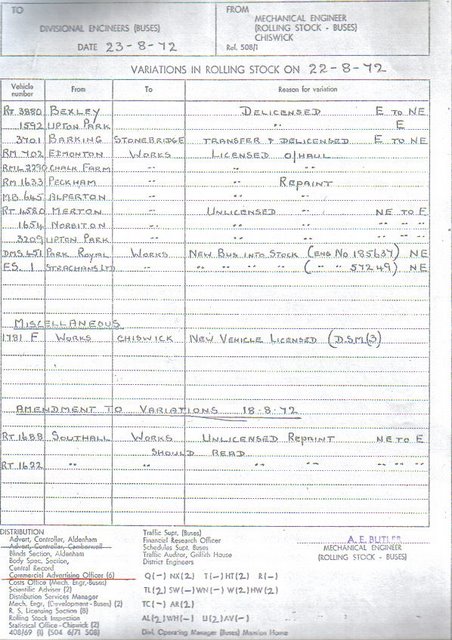 TO
DIVISIONAL ENGINEERS (BUSES)
DATE 23-8-72
FROM
MECHANICAL ENGINEER
(ROLLING STOCK - BUSES)
CHISWICK
Ref. 508/1
VARIATIONS IN ROLLING STOCK ON 22-8-72
Vehicle number From To Reason for variation
RT 3880 BEXLEY DELICENSED E TO NE
1592 UPTON PARK " E
3701 BARKING STONEBRIDGE TRANSFER & DELICENSED E TO NE
RM 702 EDMONTON WORKS LICENSED O/HAUL
RML 2290 CHALK FARM " " "
RM 1633 PECKHAM " " REPAINT
MB 645 ALPERTON " " "
RT 4580 MERTON " UNLICENSED " NE TO E
1654 NORBITON " " " " " "
3209 UPTON PARK " " " " " "
DMS 451 PARK ROYAL WORKS NEW BUS INTO STOCK (ENG NO 185637) NE
FS. 1 STRACHANS LTD " " " " " ( " " 57249) NE
MISCELLANEOUS
1781 F WORKS CHISWICK NEW VEHICLE LICENSED (D.S.M.(3)
AMENDMENT TO VARIATIONS 18-8-72
RT 1688 SOUTHALL WORKS UNLICENSED REPAINT NE TO E
SHOULD READ
RT 1622 " " " " " " "
DISTRIBUTION
Advert. Controller, Aldenham
Advert. Controller, Camberwell
Blinds Section, Aldenham
Body Spec. Section,
Central Record
Commercial Advertising Officer (6)
Costs Office (Mech. Engr.-Buses)
Scientific Adviser (2)
Distribution Services Manager
Mech. Engr. (Development - Buses) (2)
R. S. Licensing Section (8)
Rolling Stock Inspection
Statistical Office - Central
408/69 (1) (504 6/71 508)
Traffic Supt. (Buses)
Financial Research Officer
Schedules Supt. Buses
Traffic Auditor, Griffith House
District Engineers
Q(-) NX(2) T(-) HT(2) R(-)
TL(2) SW(-) WN(-) W(2) HW(2)
TC(-) AR(2)
AL(2) WH(-) U(2) AV(-)
Divl. Operating Manager (Buses) Mansion Home
A. E. BUTLER
MECHANICAL ENGINEER
(ROLLING STOCK - BUSES)